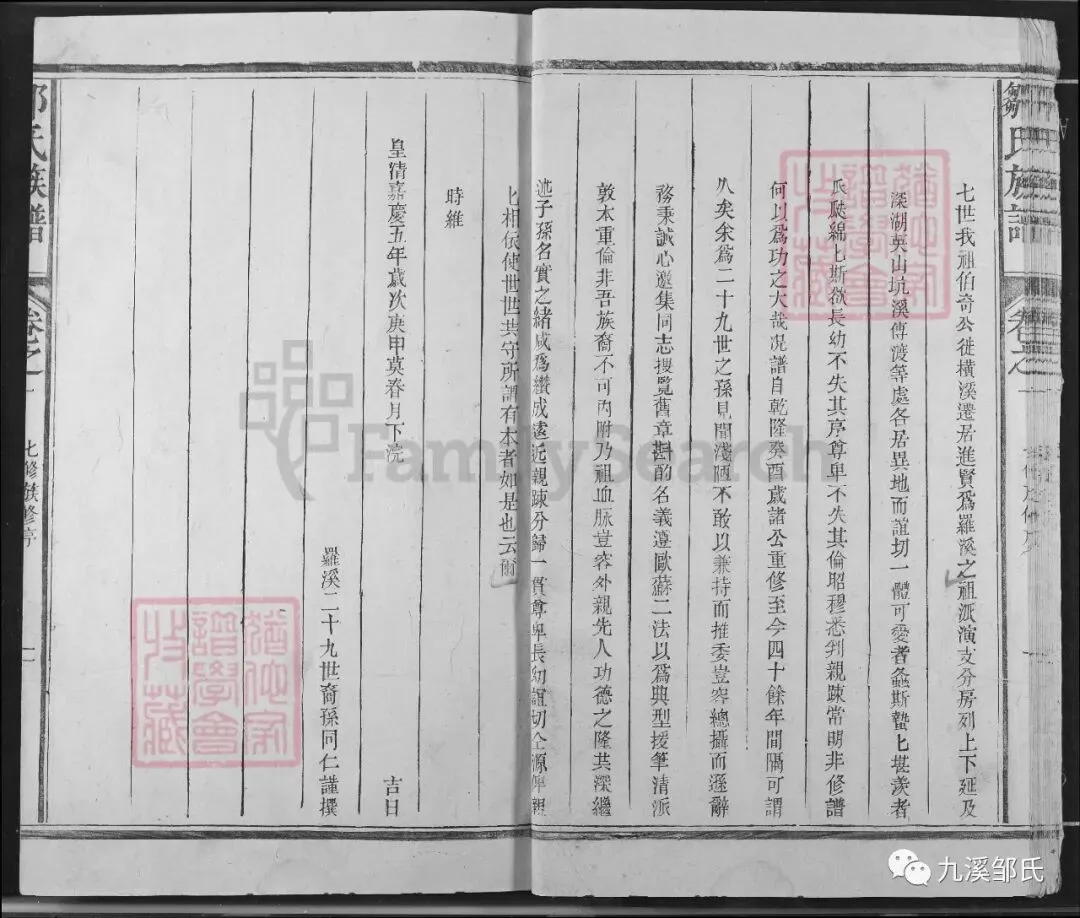 鄒氏族譜
卷之一
七世我祖伯奇公徙橫溪遷居進賢爲羅溪之祖派演支分房列上下延及
深湖英山坑溪傅渡等處各居異地而誼切一體可愛者螽斯蟄匕堪羨者
瓜瓞綿匕斯欲長幼不失其序尊卑不失其倫昭穆悉判親疎當明非修譜
何以爲功之大哉况譜自乾隆癸酉歲諸公重修至今四十餘年間隔可謂
久矣矣爲二十九世之孫見聞淺陋不敢以兼持而推委豈容總攝而遜辭
務秉誠心邀集同志搜覽舊章斟酌名義遵歐蘇二法以爲典型援筆清派
敦本重倫非吾族裔不可內附乃祖血脈豈容外親先人功德之隆共深繼
述子孫名實之緒咸爲纘成遠近親疎分歸一貫尊卑長幼誼切仝源俾親
匕相依使世世共守所謂有本者如是也云爾
時維
皇清嘉慶五年歲次庚申莫春月下浣 吉日
羅溪二十九世裔孫同仁謹撰
鄒氏族譜
卷之一
七修族修序
二
猶他家譜學會收藏
猶他家譜學會收藏
FamilySearch
九溪邹氏